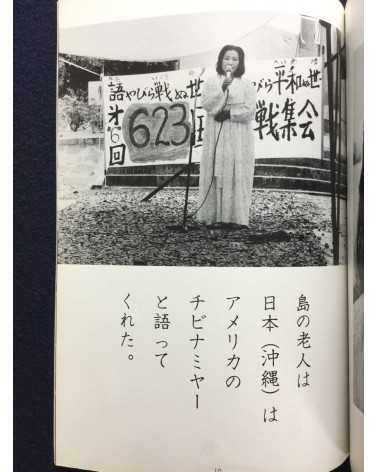 語やびら戦ぬ世
びら平和ぬ世
第6回
6.23
戦集会
島の老人は
日本（沖縄）は
アメリカの
チビナミヤー
と語って
くれた。